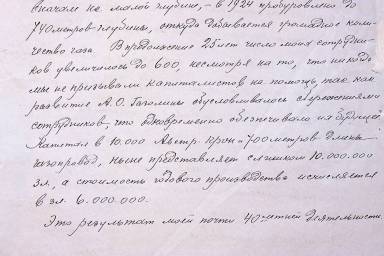 вначале на малой глубине, – в 1924 пробуравлено до
740 метров глубины, откуда добывается громадное коли-
чество газа. В продолжение 25 лет число моих сотрудни-
ков увеличилось до 600, несмотря на то, что никогда
мы не призывали капиталистов на помощь, так как
развитие А.О. Газолины обусловливалось сбережениями
сотрудников, что одновременно обезпечивало их будущее
Капитал в 10.000 Австр. Крон и 700 метров длины
газопровод, ныне представляет слишком 10.000.000
зл., а стоимость годового производства исчисляется
в зл. 6.000.000.
Это результат моей почти 40 летней деятельности.